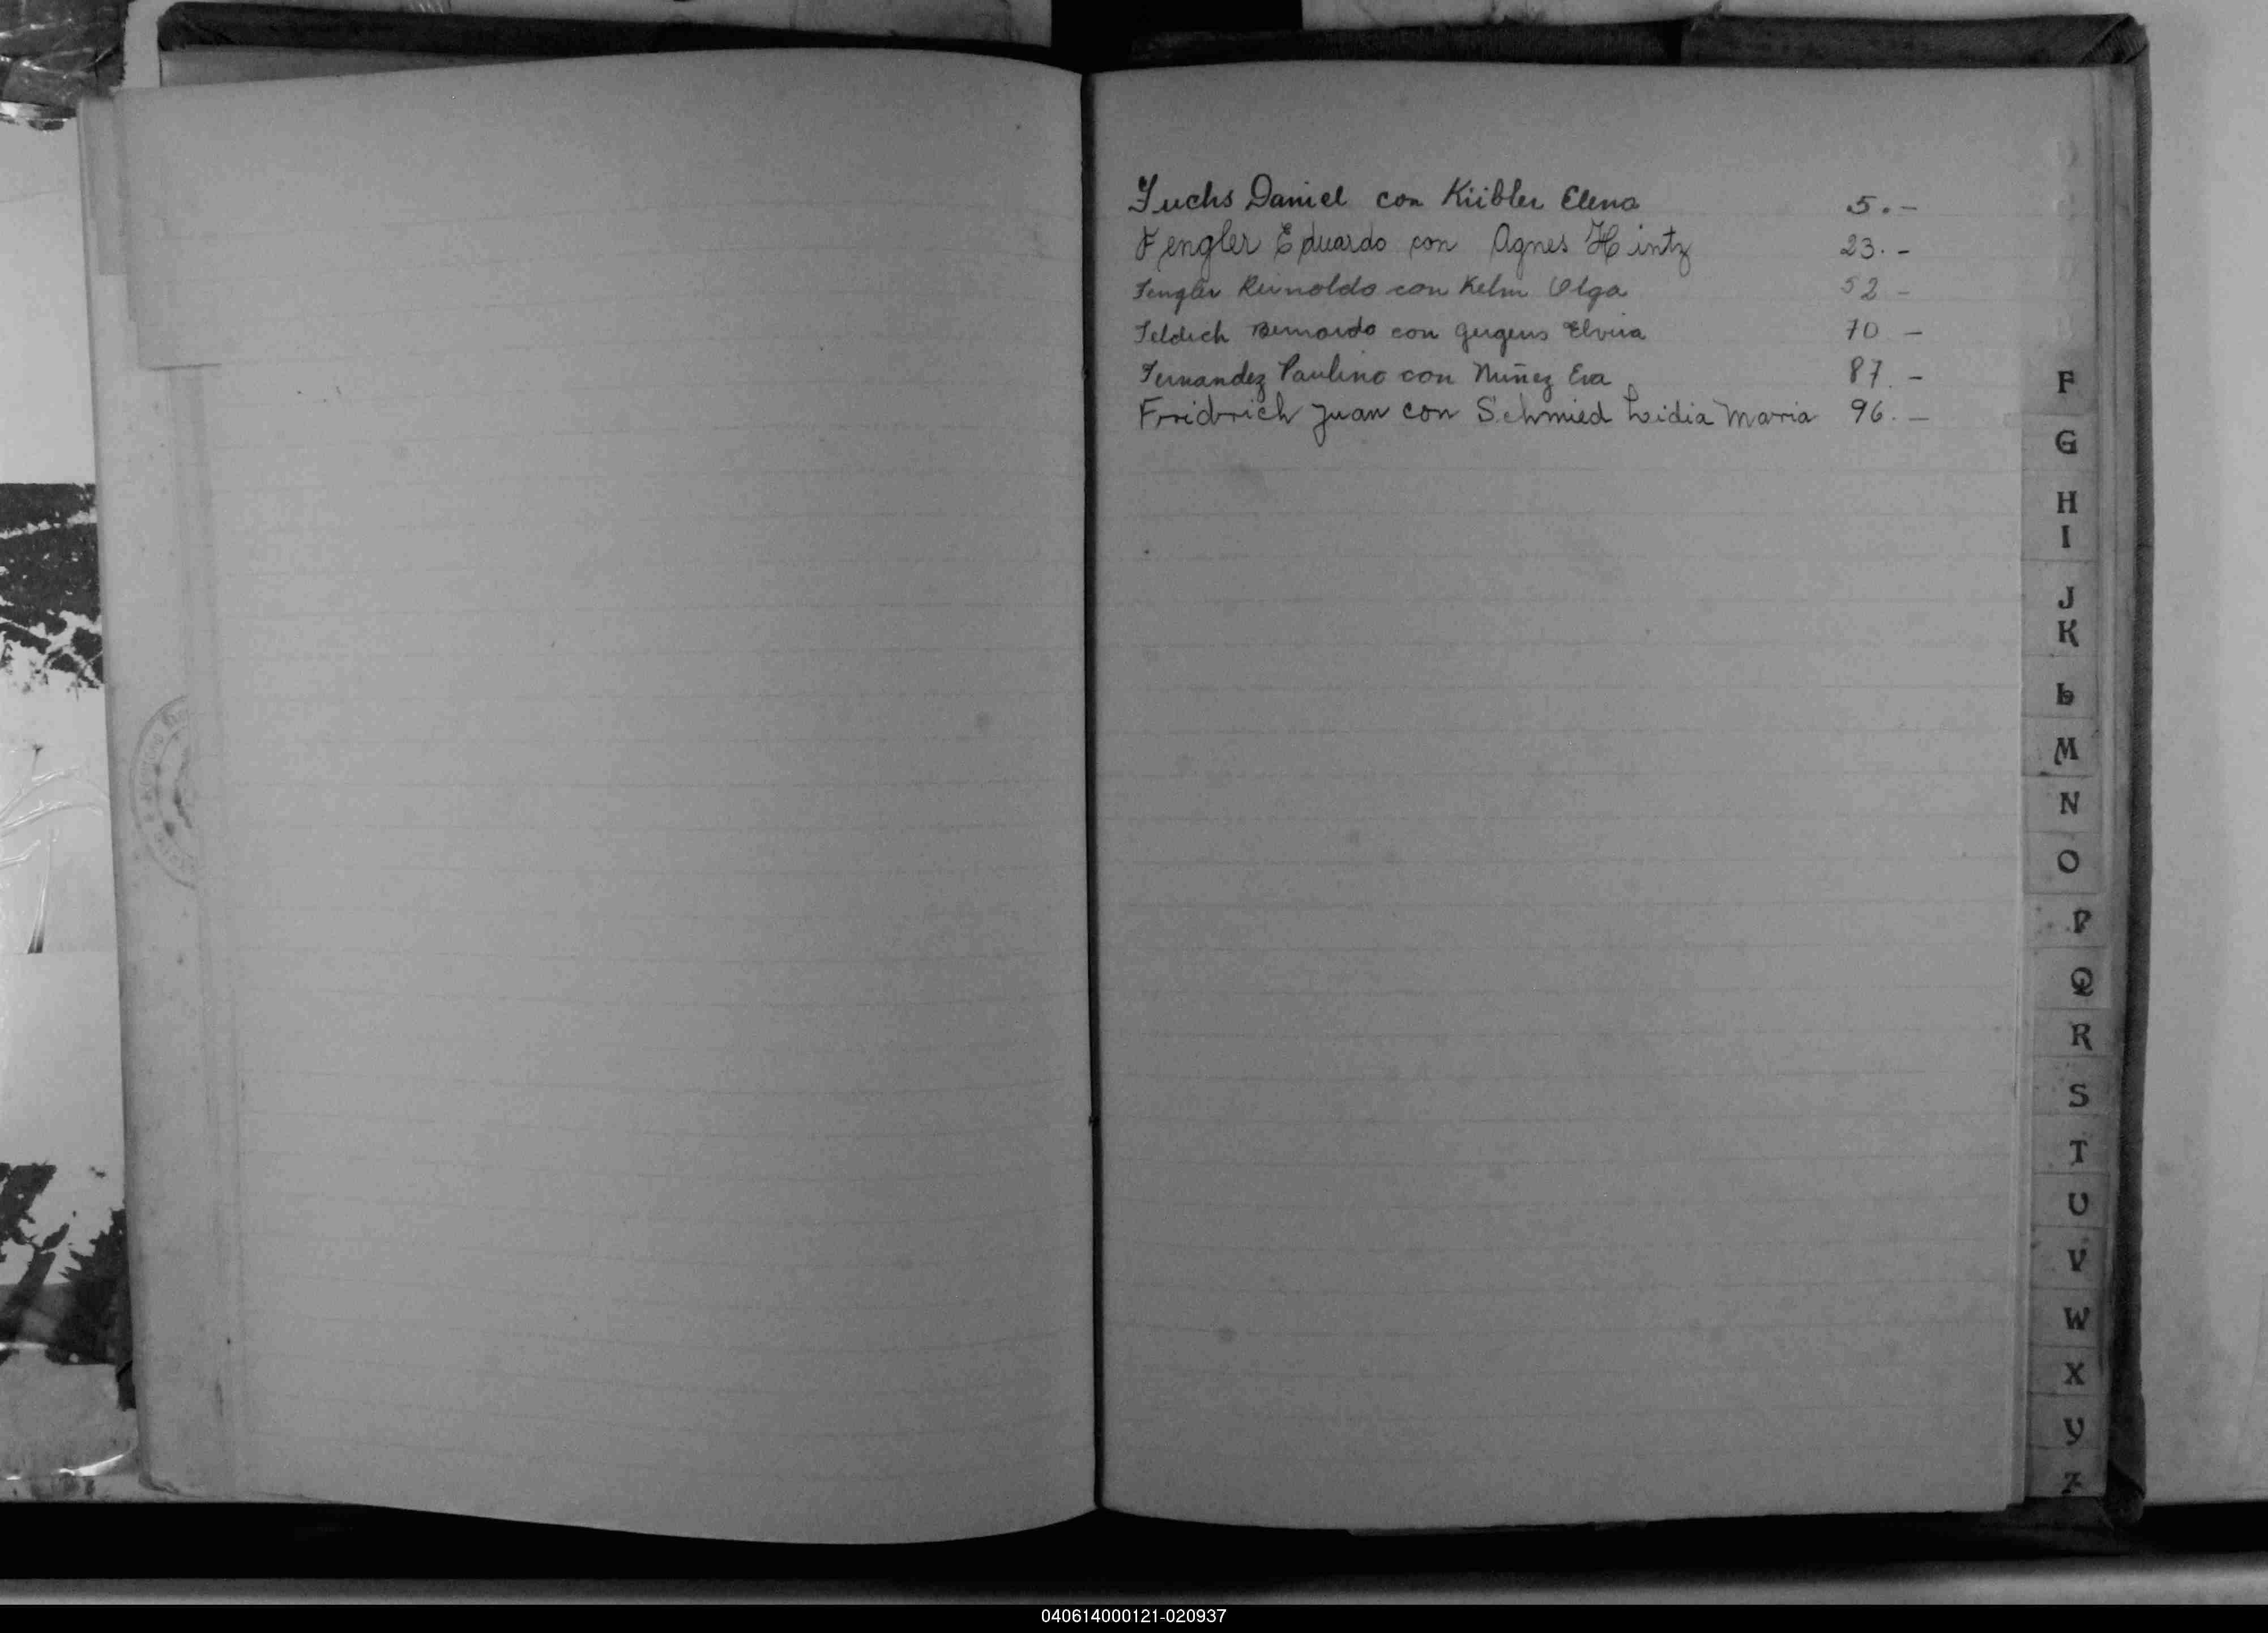 Fuchs Daniel con Kübler Elena 5.-
Fengler Eduardo con Agnes Hintz 23.-
Fengler Reinoldo con Kelm Olga 52 -
Feldich Bernardo con Gergens Elvira 70 -
Fernandez Paulino con Nuñez Eva 87. -
Fridrich Juan con Schmied Lidia Maria 96. -
F
G
H
I
J
K
L
M
N
O
P
Q
R
S
T
U
V
W
X
Y
Z
040614000121-020937